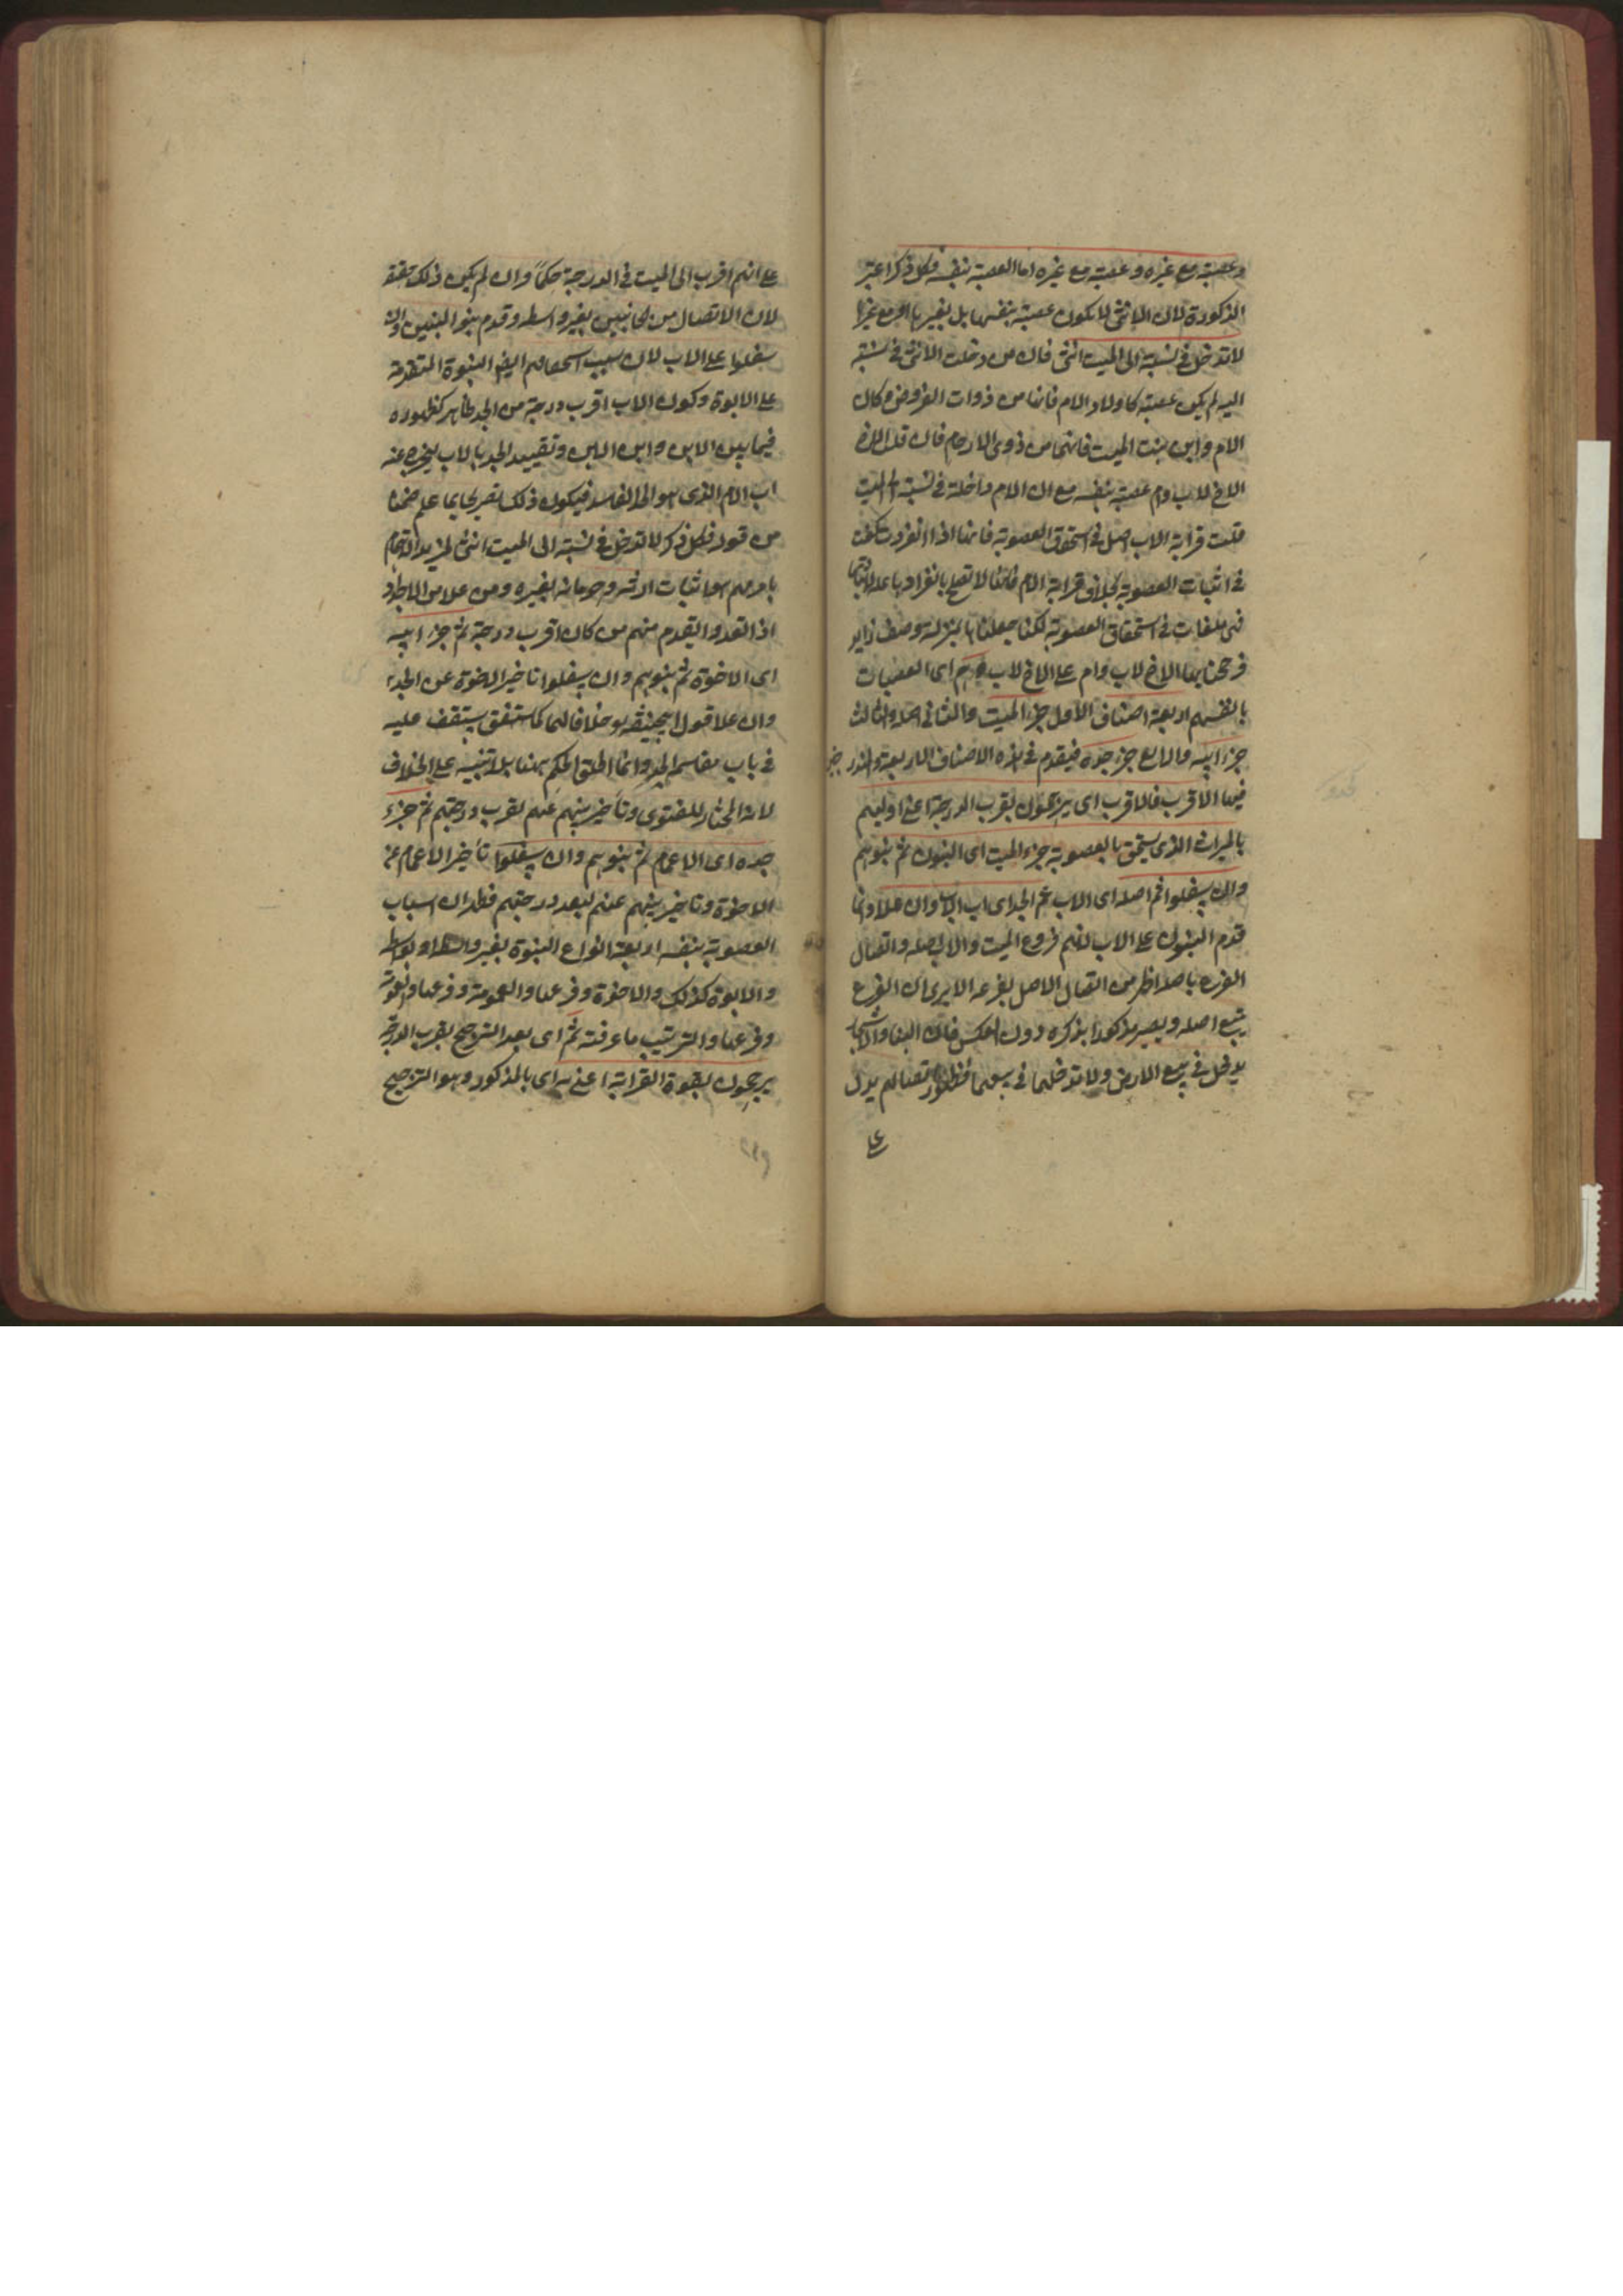 وعصبة مع غيره وعصبة مع غيره اما العصبة بنفسه فكل ذكر اعتبر
الذكورة لان الانثى لا يكون عصبة بنفسها بل بغيرها او مع غيرها
لا تدخل في نسبته الى الميت انثى فان من دخلت الانثى في نسبته
اليه لم يكن عصبة كاولاد الام فانها من ذوات الفروض وكاب
الام وابن بنت الميت فانهما من ذوى الارحام فان قلت الاخ
الاخ لاب وام عصبة بنفسه مع ان الام داخلة في نسبته الى الميت
قلت قرابة الاب اصل في استحقاق العصوبة فانها اذا انفردت كفت
في اثبات العصوبة بخلاف قرابة الام فانها لا تصلح بانفرادها علة لاثباتها
فهى ملغات في استحقاق العصوبة لكنا جعلناها بمنزلة وصف زايد
فرجحنا بها الاخ لاب وام على الاخ لاب وهم اى العصبات
بانفسهم اربعة اصناف الاول جزء الميت والثانى اصله والثالث
جزء ابيه والرابع جزء جده فيقدم في هذه الاصناف الاربعة
فيها الاقرب فالاقرب اى يرجحون بقرب الدرجة اعنى اوليهم
بالميراث الذى يستحق بالعصوبة جزء الميت اى البنون ثم بنوهم
وان سفلوا ثم اصله اى الاب ثم الجد اى اب الاب وان علا وانما
قدم البنون على الاب لانهم فروع الميت والاب اصله واتصال
الفرع باصله اظهر من اتصال الاصل بفرعه الا يرى ان الفرع
يتبع اصله ويصير مذكورا بذكره دون العكس فان البناء والاشجار
يدخل في بيع الارض ولا تدخلها في بيعهما فظهور اتصالهم يدل
على
على انهم اقرب الى الميت في الدرجة حكما وان لم يكن ذلك حقيقة
لان الاتصال من الجانبين بغير واسطه وقدم بنو البنين وان
سفلوا على الاب لان سبب استحقاقهم ايضا البنوة المتقدمة
على الابوة وكون الاب اقرب درجة من الجد ظاهر كظهوره
فيما بين الابن وابن الابن وتقييد الجد بالاب ليخرج عنه
اب الام الذى هو الجد الفاسد فيكون ذلك تصريحا بما علم ضمنا
من قوله فكل ذكر لا تدخل في نسبته الى الميت انثى لمزيد الاهتمام
بامرهم هو اثبات ارثه وحرمانه بغيره ومن علا من الاجداد
اذا تعدد التقدم منهم من كان اقرب درجة ثم جزء ابيه
اى الاخوة ثم بنوهم وان سفلوا تاخير الاخوة عن الجد
وان علا قول ابيحنيفة خلافا لهما كما ستقف عليه
في باب مقاسمة الجد وانما اطلق الحكم ههنا بلا تنبيه على الخلاف
لانه المختار للفتوى وتأخير بنيهم عنهم لقرب درجتهم ثم جزء
جده اى الاعمام ثم بنوهم وان سفلوا تأخير الاعمام عن
الاخوة وتاخير بنيهم عنهم لبعد درجتهم فظهر ان اسباب
العصوبة بنفسه اربعة انواع البنوة بغير واسطة او بواسطة
والابوة كذلك والاخوة وفرعها والعمومة وفرعها
وفرعها والترتيب ما عرفته ثم اى بعد الترجيح بقرب الدرجة
يرجحون بقوة القرابة اعنى به اى بالمذكور وهو الترجيح